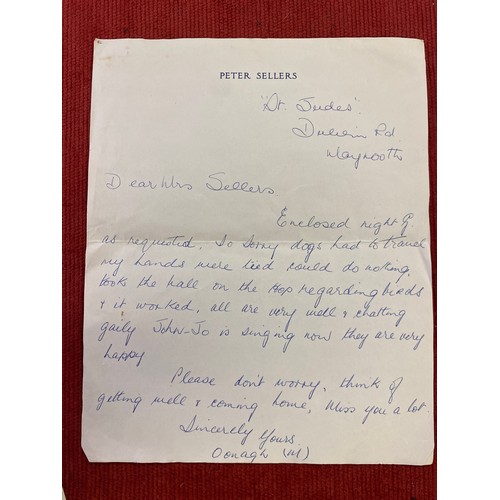 PETER SELLERS
"St. Judes".
Dublin Rd
Maynooth
Dear Mrs Sellers
Enclosed night G.
as requested. So Sorry dogs had to travel
my hands were tied could do nothing,
took the hall on the Hop regarding birds
& it worked, all are very well & chatting
gaily John-Jo is singing now they are very
happy
Please don't worry, think of
getting well & coming home, Miss you a lot.
Sincerely Yours,
Oonagh (M)